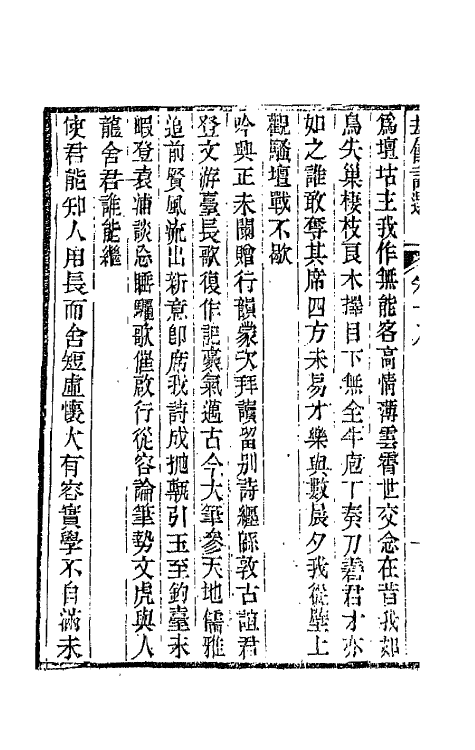 爲壇坫主我作無能客高情薄雲霄世交念在昔我如
鳥失巢棲枝良木擇目下無全牛庖丁奏刀砉君才亦
如之誰敢奪其席四方未易才樂與數晨夕我從壁上
觀騷壇戰不歇
吟興正未闌贈行韻蒙次拜讀留别詩纏緜敦古誼君
登文游臺長歌復作記豪氣邁古今大筆參天地儒雅
追前賢風流出新意即席我詩成拋甎引玉至釣臺未
暇登袁浦談忘睡驪歌催啟行從容論筆勢文虎與人
龍舍君誰能繼
使君能知人用長而舍短虛懷大有容實學不自滿未